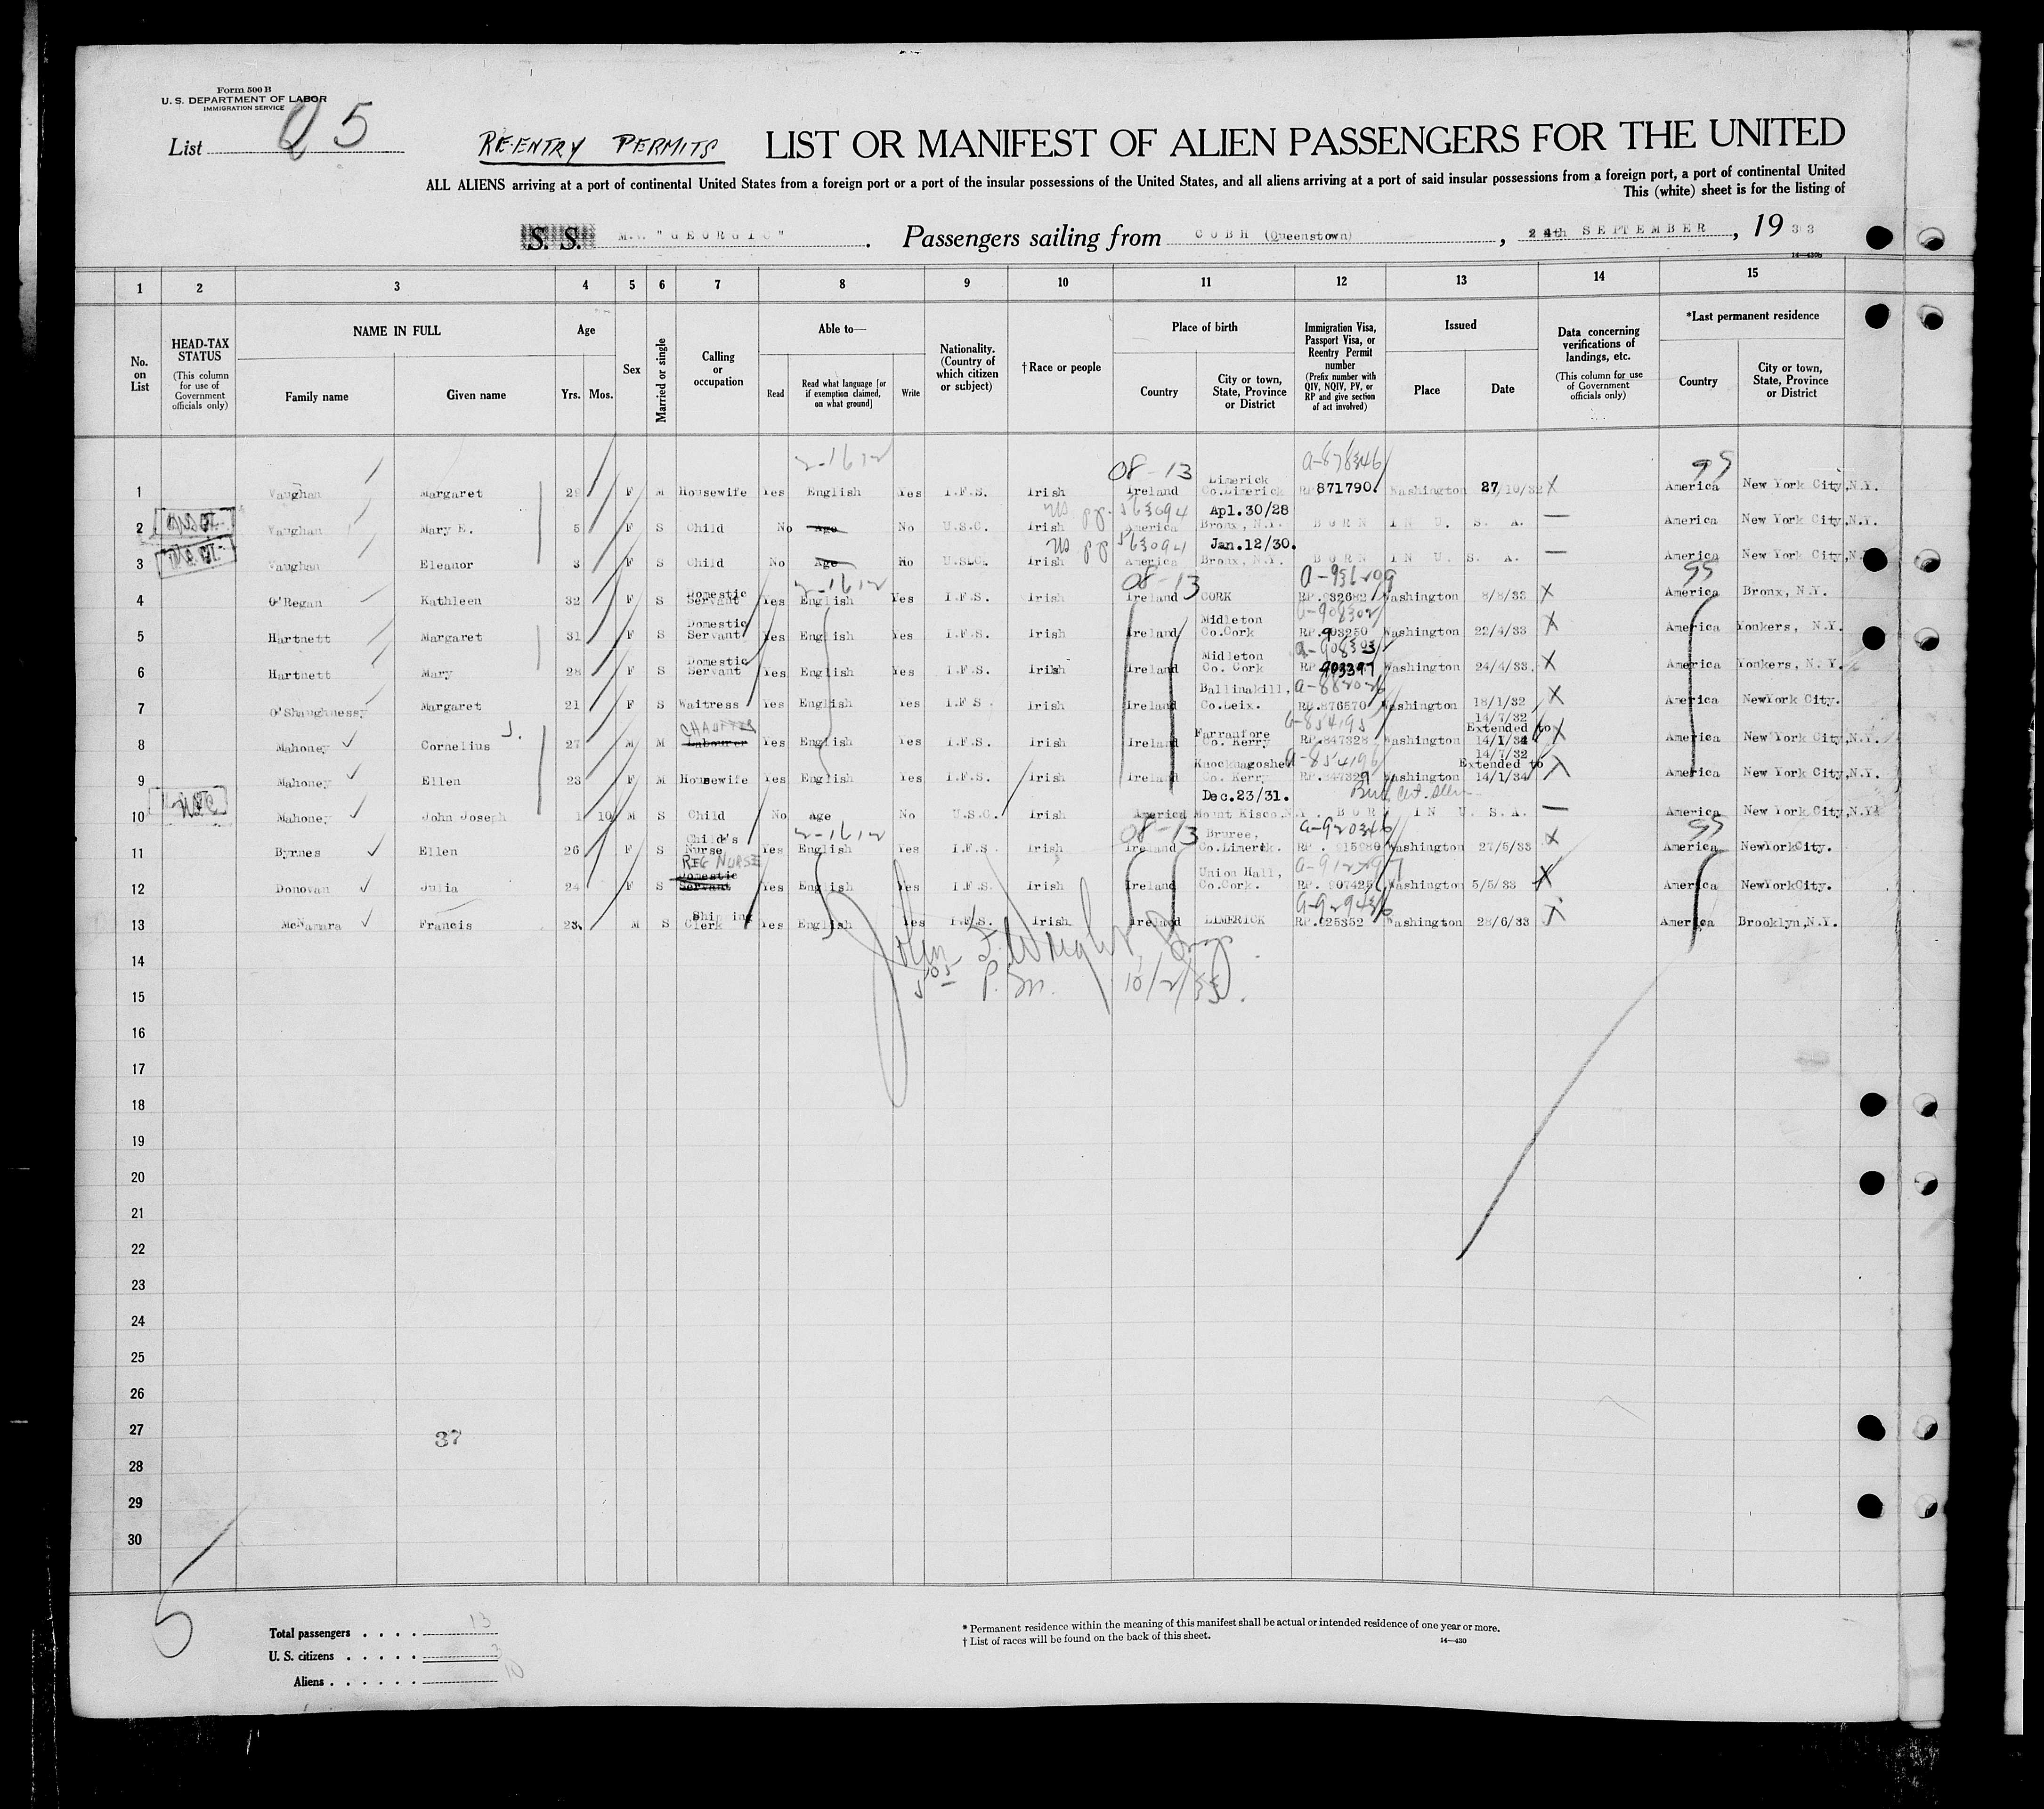 Form 500 B
U. S. DEPARTMENT OF LABOR
IMMIGRATION SERVICE
List 25
RE-ENTRY PERMITS LIST OR MANIFEST OF ALIEN PASSENGERS FOR THE UNITED
ALL ALIENS arriving at a port of continental United States from a foreign port or a port of the insular possessions of the United States, and all aliens arriving at a port of said insular possessions from a foreign port, a port of continental United
This (white) sheet is for the listing of
S. S. M.V. "GEORGIC". Passengers sailing from COBH (Queenstown), 24th SEPTEMBER, 1933
14—430b
1 2 3 4 5 6 7 8 9 10 11 12 13 14 15
No. on List
HEAD-TAX STATUS (This column for use of Government officials only)
NAME IN FULL
Family name Given name
Age
Yrs. Mos.
Sex
Married or single
Calling or occupation
Able to—
Read Read what language [or if exemption claimed, on what ground] Write
Nationality. (Country of which citizen or subject)
†Race or people
Place of birth
Country City or town, State, Province or District
Immigration Visa, Passport Visa, or Reentry Permit number (Prefix number with QIV, NQIV, PV, or RP and give section of act involved)
Issued
Place Date
Data concerning verifications of landings, etc. (This column for use of Government officials only)
*Last permanent residence
Country City or town, State, Province or District
2-1612 08-13 Limerick a-878346 99
1 Vaughan Margaret 29 F M Housewife Yes English Yes I.F.S. Irish Ireland Co.Limerick RP 871790. Washington 27/10/32 X America New York City,N.Y.
US pp. 563094 Apl.30/28
2 Vaughan Mary E. 5 F S Child No Age No U.S.C. Irish America Bronx, N.Y. BORN IN U. S. A. — America New York City,N.Y.
US pp 563094 Jan.12/30.
3 Vaughan Eleanor 3 F S Child No Age No U.S.C. Irish America Bronx, N.Y. BORN IN U. S. A. — America New York City,N.Y.
2-1612 08-13 99
4 O'Regan Kathleen 32 F S Domestic Servant Yes English Yes I.F.S. Irish Ireland CORK RP.932682 Washington 8/8/33 X America Bronx, N.Y.
a-908302
5 Hartnett Margaret 31 F S Domestic Servant Yes English Yes I.F.S. Irish Ireland Midleton Co.Cork RP.903250 Washington 22/4/33 X America Yonkers, N.Y.
a-908303
6 Hartnett Mary 28 F S Domestic Servant Yes English Yes I.F.S. Irish Ireland Midleton Co. Cork RP 903397 Washington 24/4/33. X America Yonkers, N.Y.
7 O'Shaughnessy Margaret 21 F S Waitress Yes English Yes I.F.S. Irish Ireland Ballinakill, Co.Leix. RP.876570 Washington 18/1/32 X America NewYork City.
a-854195
8 Mahoney ✓ Cornelius J. 27 M M Labourer Yes English Yes I.F.S. Irish Ireland Farranfore Co. Kerry RP.847328 Washington 14/7/32 Extended to 14/1/34 X America New York City,N.Y.
a-854196
9 Mahoney ✓ Ellen 23 F M Housewife Yes English Yes I.F.S. Irish Ireland Knocknagoshel Co. Kerry RP.847329 Washington 14/7/32 Extended to 14/1/34 X America New York City,N.Y.
USC Dec.23/31.
10 Mahoney ✓ John Joseph 1 10 M S Child No Age No U.S.C. Irish America Mount Kisco.N.Y. BORN IN U. S. A. — America New York City,N.Y.
2-1612 08-13 a-920346 99
11 Byrnes ✓ Ellen 26 F S Child's Nurse Yes English Yes I.F.S. Irish Ireland Bruree, Co.Limerick. RP. 915980 Washington 27/5/33 X America NewYorkCity.
REG NURSE
12 Donovan ✓ Julia 24 F S Domestic Servant Yes English Yes I.F.S. Irish Ireland Union Hall, Co.Cork. RP. 907426 Washington 5/5/33 X America NewYorkCity.
a-929436
13 McNamara ✓ Francis 23 M S Shipping Clerk Yes English Yes I.F.S. Irish Ireland LIMERICK RP.925352 Washington 28/6/33 X America Brooklyn,N.Y.
14 John F. Wright,
505 P.M. 10/2/33.
15
16
17
18
19
20
21
22
23
24
25
26
27
37
28
29
30
5
Total passengers . . . . 13
U. S. citizens . . . . . 3
Aliens . . . . . . 10
* Permanent residence within the meaning of this manifest shall be actual or intended residence of one year or more.
† List of races will be found on the back of this sheet.
14—430